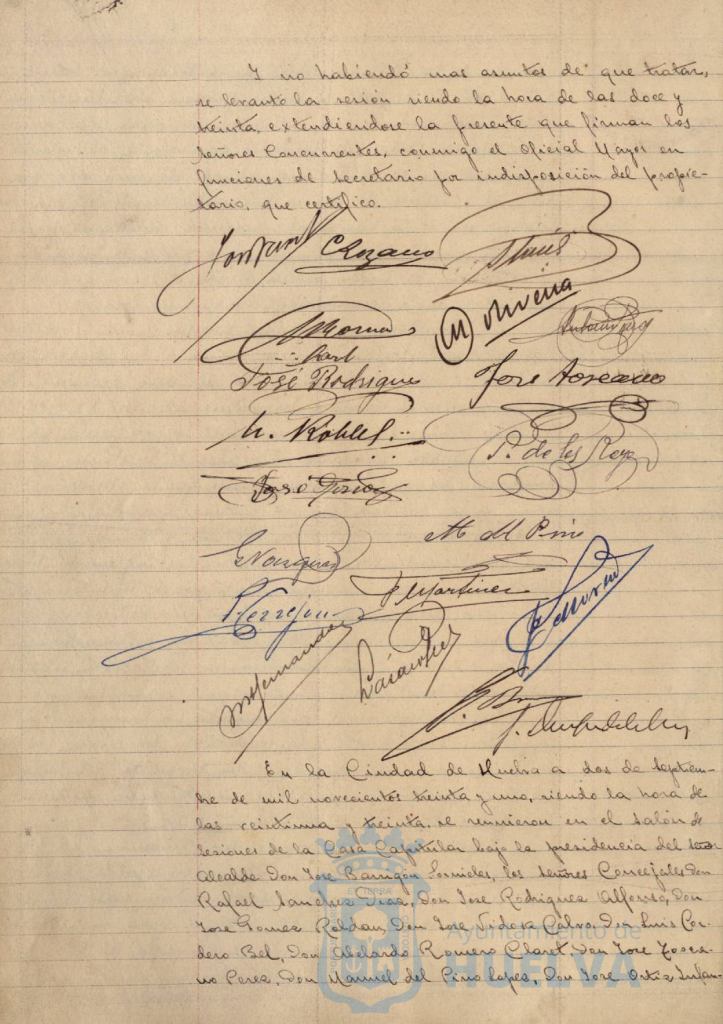 Y no habiendo mas asuntos de que tratar,
se levantó la sesión siendo la hora de las doce y
treinta, extendiendose la presente que firman los
Señores Concurrentes, conmigo el Oficial Mayor en
funciones de Secretario por indisposición del propie-
tario, que certifico.
C Lozano
M Olivera
José Rodriguez
José Toscano
M. Robles
P. de los Reyes
José
E Vazquez
M del Pino
P Martinez
P Terrejon
Moreno
M Hernandez
En la Ciudad de Huelva a dos de Septiem-
bre de mil novecientos treinta y uno, siendo la hora de
las veintiuna y treinta, se reunieron en el Salón de
Sesiones de la Casa Capitular bajo la presidencia del Señor
Alcalde Don Jose Barrigon Fornieles, los Señores Concejales Don
Rafael Sanchez Diaz, Don Jose Rodriguez Alfonso, Don
Jose Gomez Roldan, Don Jose Tidera Calvo, Don Luis Cor-
dero Bel, Don Abelardo Romero Claret, Don Jose Tosca-
no Perez, Don Manuel del Pino Lopez, Don Jose Ortiz Infan-
Ayuntamiento de
HUELVA